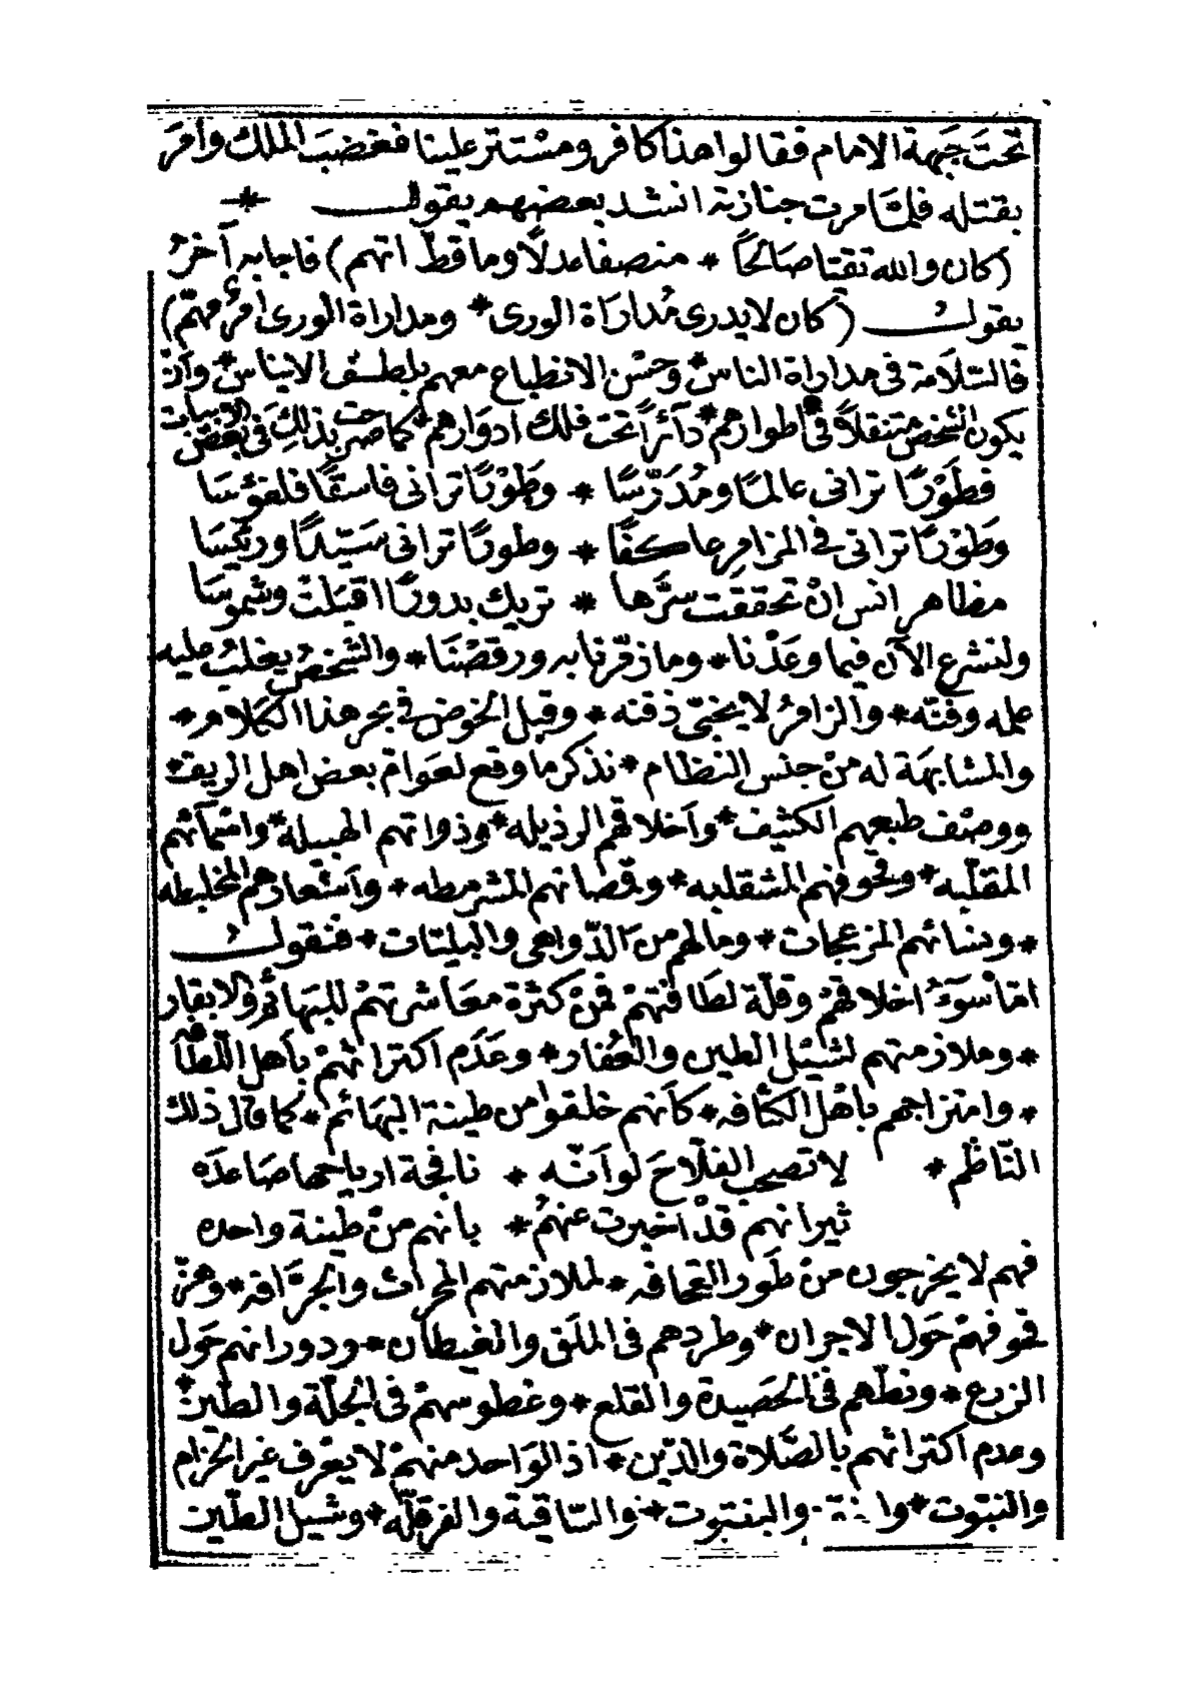 تحتَ جَبهة الامام فقالوا هذا كافر ومسْتتر علينا فغضبَ الملك وأمَرَ
بقتله فلمّا مرت جنازته انشد بعضهم يقول *
(كان والله تقتا صَالحًا * منصفا عدلًا وما قطّ اتهم) فاجابه آخرُ
يقولُ (كان لا يدرى مُدارَاة الورى * ومداراة الورى أمرٌ مهمّ)
فالسّلامة فى مداراة الناسْ * وحُسْن الانطباع معهم بلطف الايناسْ * وأنْ
يكون الشخص متنقلاً فى اطوارهم * دآئراً تحت فلك ادوارهم * كما صرحت بذلِكَ فى بعض الابيات
فطَوْرًا ترانى عالمًا ومُدَرّسًا * وطَوْرًا ترانى فاسقًا فلفوُسَا
وَطَوْرًا ترانى فى المزامِرِ عاكفًا * وطورًا ترانى سَيّدًا ورئيسَا
مظاهر انس انْ تحققت سرَّها * تريك بدورًا اقبَلتْ وشموسَا
ولنشرع الآن فيما وعَدْنا * وما زمّرنا به ورقصْنَا * والشخصُ يغلبُ عليه
عمله وفنّه * والزامرُ لا يخبّى ذقنه * وقبل الخوض فى بحر هذا الكلام *
والمشابهَة له منْ جنس النظام * نذكر ما وقع لعَوامّ بعض اهل الريف *
ووصْف طبعهم الكثيف * وأخلاقهم الرذيله * وذواتهم الهبيلة * واسْمآئهم
المقلّبه * وقحوفهم المشقلبه * وقمصانهم المشرمطه * وأسْعارهم المخلبطه
* ونسائهم المزعجات * ومالهم من الدّواهى والبليّات * فنقولُ
امّا سُوَءُ اخلاقهمْ وقلّة لطَافتهمْ فمنْ كثرة معَاشرتهمْ للبَهائم والابقار
* وملازمتهم لشيْل الطين والعُفار * وعَدَم اكتراثهمْ بأهل اللّطافه
* وامتزاجهم بأهْل الكثافه * كأنهم خلقوا من طينة البَهائم * كما قال ذلك
النّاظم * لا تصحب الفلّاحَ لو أنّه * نافجة ارياحها صَاعدَه
ثيرانهم قدْ اخبرت عنهمُ * بانهم منْ طينة واحده
فهم لا يخرجون منْ طَور القحافه * لملازمتهم المحراث والجرَّافه * وهزّ
قحوفهمْ حَول الاجران * وطردهم فى الملَق والغيطان * ودورانهم حَول
الزرع * ونطّهم فى الحَصيدة والقلع * وغطوسهمْ فى الجلّة والطّينْ *
وعدم اكتراثهم بالصَّلاة والدّين * اذ الوَاحد منهمْ لا يعْرف غير الحزام
والنبّوت * والبنتوت * والسّاقية والفرقلّه * وشيل الطّين